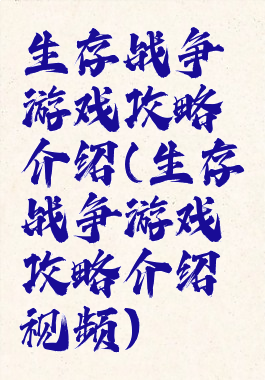 生存战争
游戏攻略
介绍(生存
战争游戏
攻略介绍
视频)